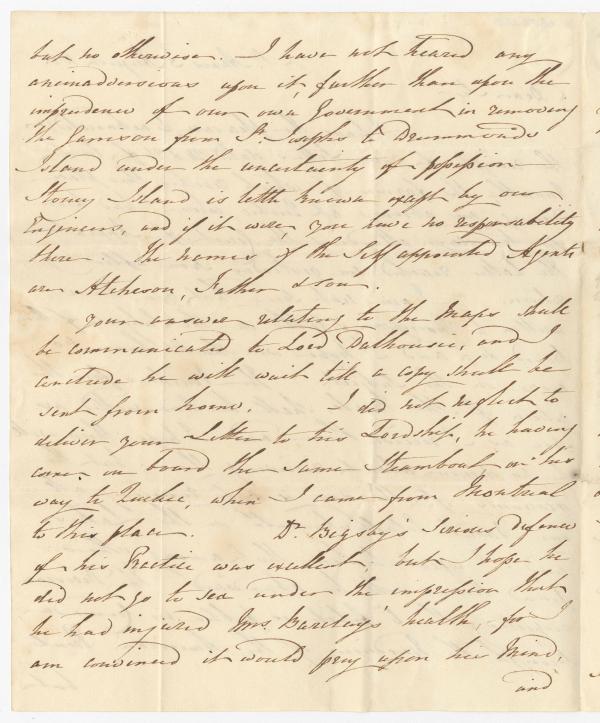 but no otherwise. I have not heared any
animadversions upon it, further than upon the
imprudence of our own Government in removing
the Garrison from St. Josephs to Drummonds
Island under the uncertainty of possession
Stoney Island is little known except by our
Engineers, and if it were, you have no responsability
there The names of the Self appointed Agents
are Atcheson, Father & son.
Your answer relating to the Maps shall
be communicated to Lord Dalhousie, and I
conclude he will wait till a copy shall be
sent from home. I did not neglect to
deliver your Letter to his Lordship, he having
come on board the same Steamboat on his
way to Quebec, when I came from Montreal
to this place. Dr. Bigsby's serious defence
of his Practice was excellent, but I hope he
did not go to sea under the impression that
he had injured Mrs. Barclay's health, for I
am convinced it would prey upon his Mind,
and